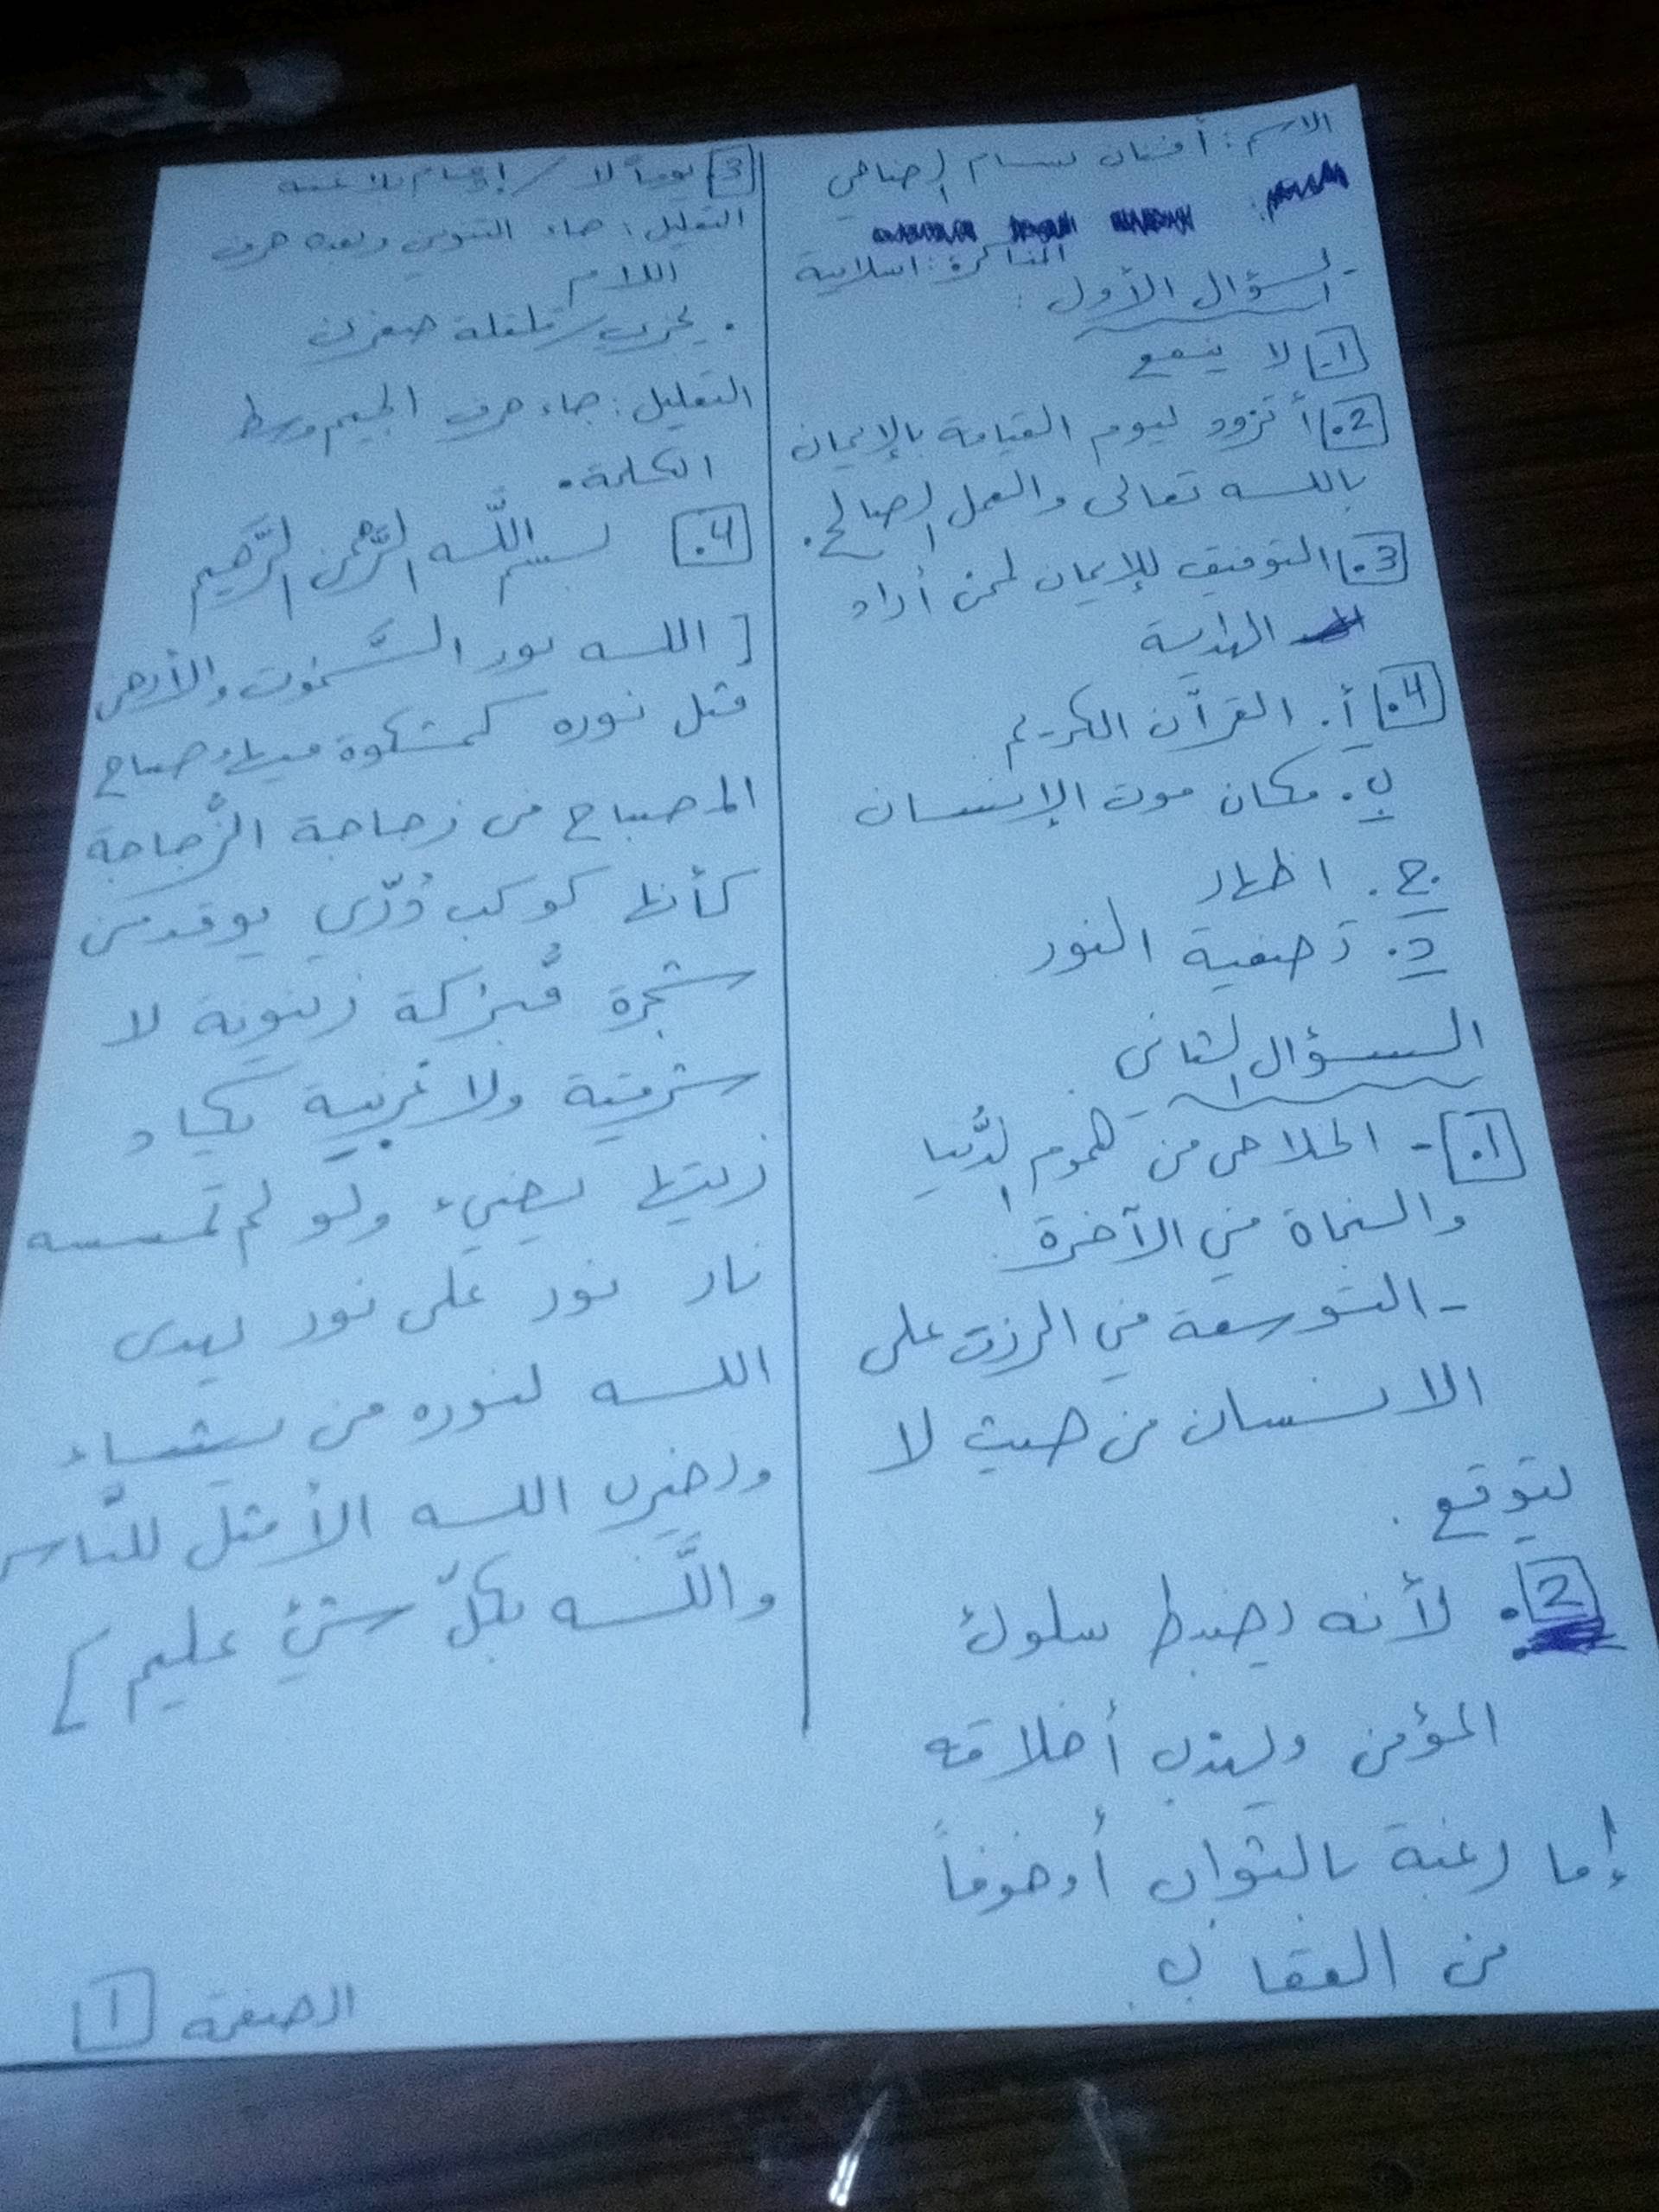 الاسم: أفنان بسام
المذاكرة: اسلامية
السؤال الأول:
1. لا ينفع
2. أتزود ليوم القيامة بالإيمان
بالله تعالى والعمل الصالح.
3. التوفيق للإيمان لمن أراد
الهداية
4. أ. القرآن الكريم
ب. مكان موت الإنسان
ج. اظهار
د. تصفية النور
السؤال الثاني
1. - الخلاص من هموم الدُّنيا
والنجاة في الآخرة.
- التوسعة في الرزق على
الانسان من حيث لا
يتوقع.
2. لأنه يضبط سلوك
المؤمن ويهذب أخلاقه
إما رغبة بالثواب أو خوفاً
من العقاب.
3 يوماً لا / إدغام بلا غنة
التعليل: جاء التنوين وبعده حرف
اللام
. يجزي / قلقلة صغرى
التعليل: جاء حرف الجيم وسط
الكلمة.
4. بسم اللّه الرَّحمن الرَّحيم
[ الله نور السَّموت والأرض
مثل نوره كمشكوة فيها مصباح
المصباح في زجاجة الزُّجاجة
كأنها كوكب دُرّي يوقد من
شجرة مُّبركة زيتونة لا
شرقية ولا غربية يكاد
زيتها يضيء ولو لم تمسسه
نار نور على نور يهدي
الله لنوره من يشاء
ويضرب الله الأمثل للنَّاس
واللَّه بكلّ شيءٍ عليم ]
الصفحة 1